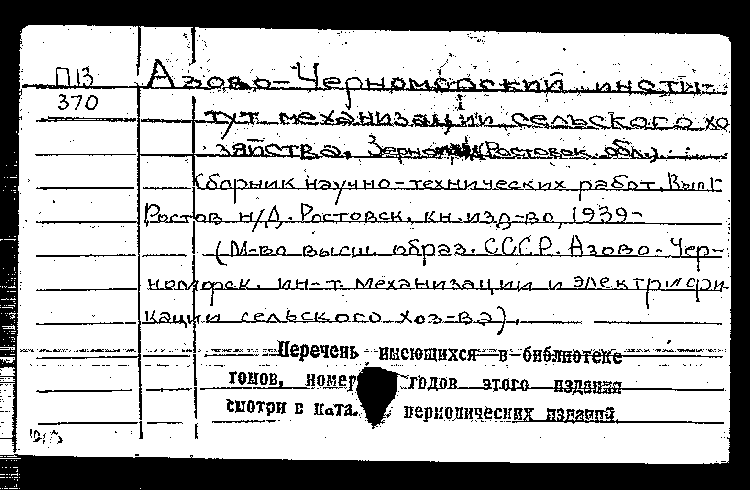 П13
370
Азово-Черноморский инсти-
тут механизации сельского хо
зяйства. (Ростовск. обл.).
Сборник научно-технических работ. Вып. 1-
Ростов н/Д. Ростовск. кн. изд-во, 1939-
(М-во высш. образ. СССР. Азово-Чер-
номорск. ин-т механизации и электрифи
кации сельского хоз-ва).
Перечень имеющихся в библиотеке
томов, номер годов этого издания
смотри в ката. периодических изданий